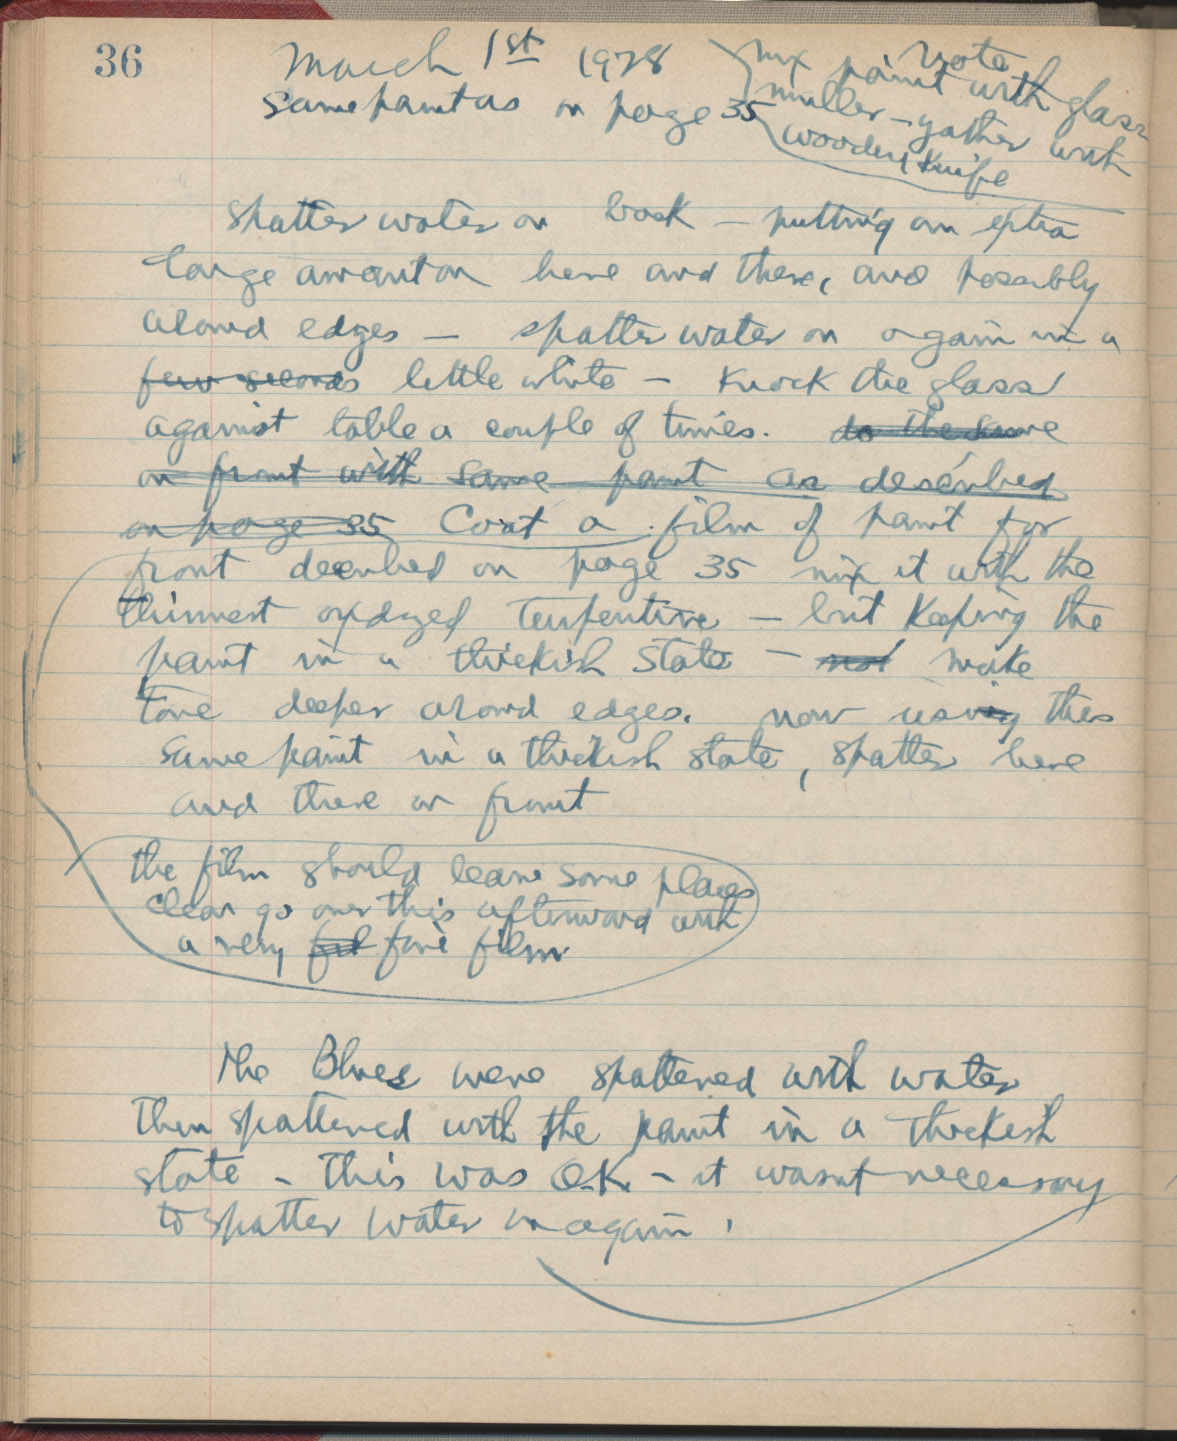 36
March 1st 1928
Same paint as on page 35
Note
mix paint with glass
muller - gather with
wooden knife
Spatter water on back - putting an extra
large amount on here and there, and possibly
around edges - spatter water on again in a
few seconds little while - knock the glass
against table a couple of times. do the same
on front with same paint as described
on page 35 Coat a film of paint for
front described on page 35 mix it with the
thinnest oxidyzed Turpentine - but keeping the
paint in a thickish state - not make
tone deeper around edges. now using this
same paint in a thickish state, spatter here
and there on front
the film should leave some places
clear go over this afterward with
a very fine film
The Blues were spattered with water
then spattered with the paint in a thickish
state - this was O.K. - it wasnt necessary
to spatter water on again.